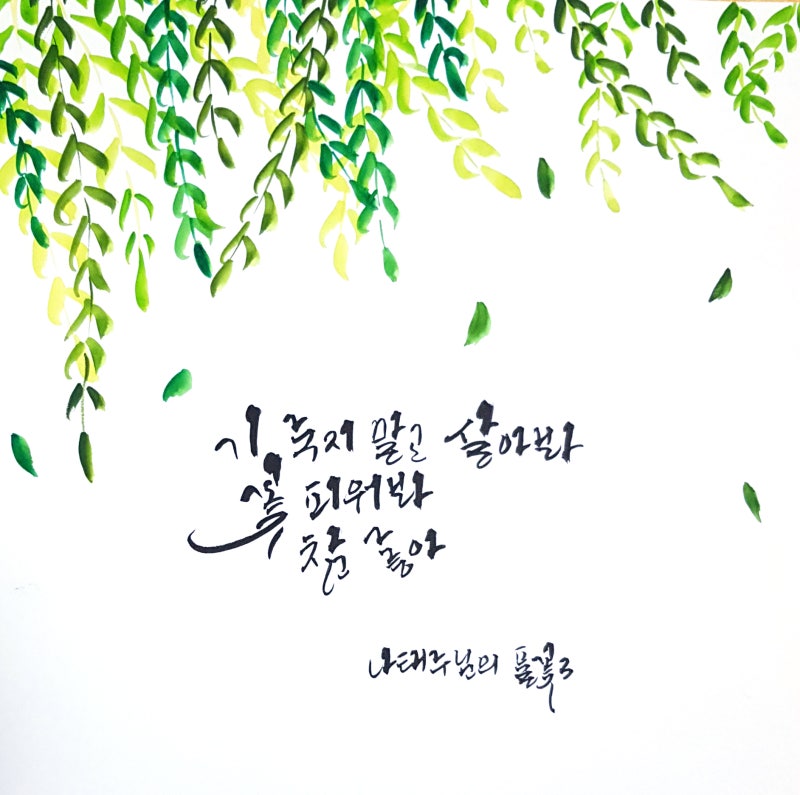 기죽지 말고 살아봐
꽃 피워봐
참 좋아
나태주님의 풀꽃3